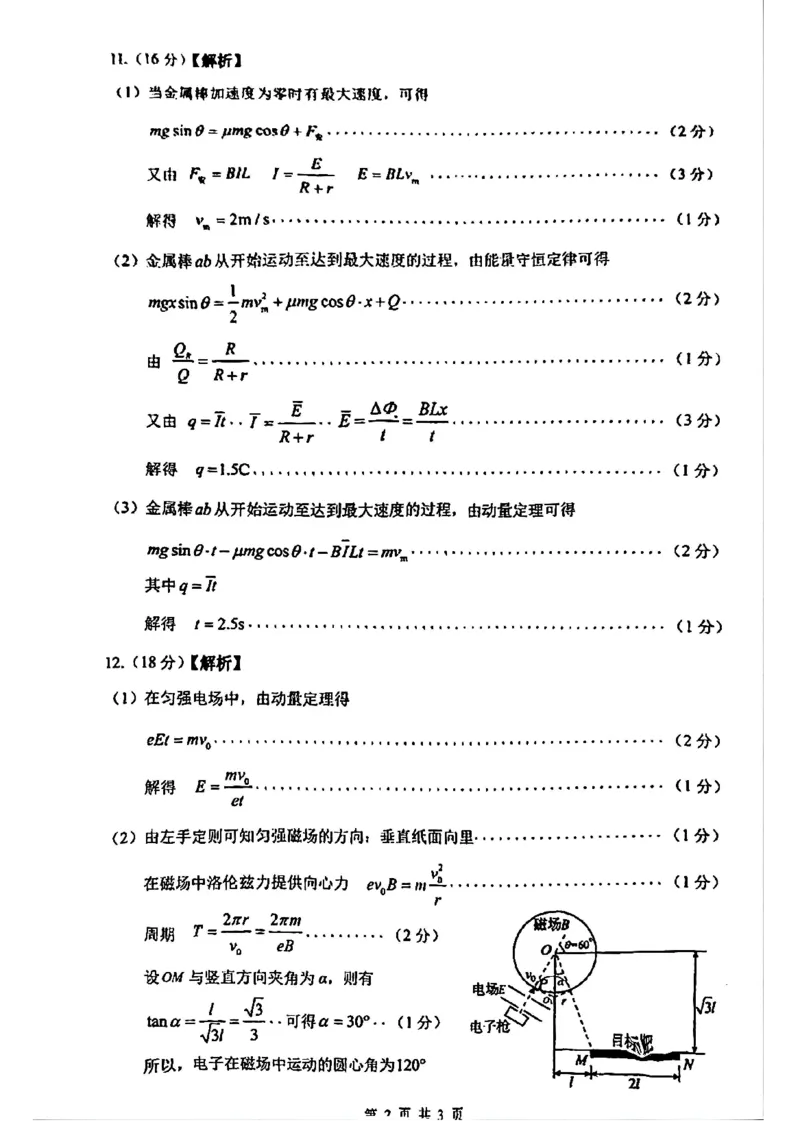 11.（16分）【解析】
（1）当金属棒加速度为零时有最大速度，可得
mg sin θ = μmg cos θ + F安 ·········（2分）
又由 F安 = BIL I = E/(R+r) E = BLvm ·········（3分）
解得 vm = 2m/s ·········（1分）
（2）金属棒ab从开始运动至达到最大速度的过程，由能量守恒定律可得
mgx sin θ = 1/2 mvm² + μmg cos θ·x + Q ·········（2分）
由 QR/Q = R/(R+r) ·········（1分）
又由 q = I̅t ·· I̅ = E̅/(R+r) ·· E̅ = ΔΦ/t = BLx/t ·········（3分）
解得 q=1.5C ·········（1分）
（3）金属棒ab从开始运动至达到最大速度的过程，由动量定理可得
mg sin θ·t − μmg cos θ·t − BI̅Lt = mvm ·········（2分）
其中 q = I̅t
解得 t = 2.5s ·········（1分）
12.（18分）【解析】
（1）在匀强电场中，由动量定理得
eEt = mv₀ ·········（2分）
解得 E = mv₀/et ·········（1分）
（2）由左手定则可知匀强磁场的方向：垂直纸面向里 ·········（1分）
在磁场中洛伦兹力提供向心力 ev₀B = m v₀²/r ·········（1分）
周期 T = 2πr/v₀ = 2πm/eB ·········（2分）
设OM与竖直方向夹角为α，则有
tan α = l/√3l = √3/3 ·· 可得α = 30° ··（1分）
所以，电子在磁场中运动的圆心角为120°
磁场B
O θ=60°
v₀ P α
电场E
r
电子枪
√3l
目标靶
M N
l 2l
第 2 页 共 3 页